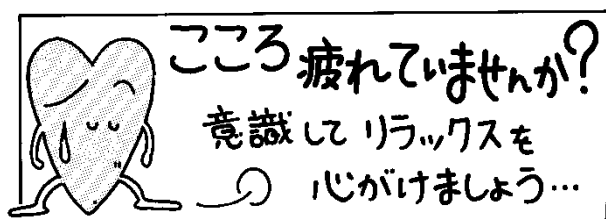 こころ疲れていませんか?
意識して リラックスを
心がけましょう…